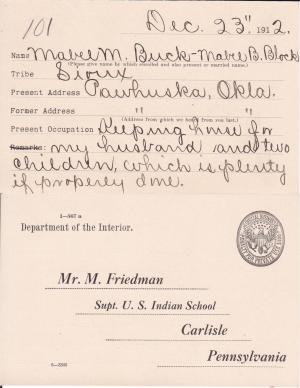 101
Dec. 23" 1912.
Name Mabel M. Buck-Mabel B. Block
(Please give name by which enrolled and also present or married name.)
Tribe Sioux
Present Address Pawhuska, Okla.
Former Address " "
(Address from which we heard from you last.)
Present Occupation Keeping house for
Remarks: my husband and two
children, which is plenty
if properly done.
1-967 a
Department of the Interior.
Mr. M. Friedman
Supt. U. S. Indian School
Carlisle
Pennsylvania